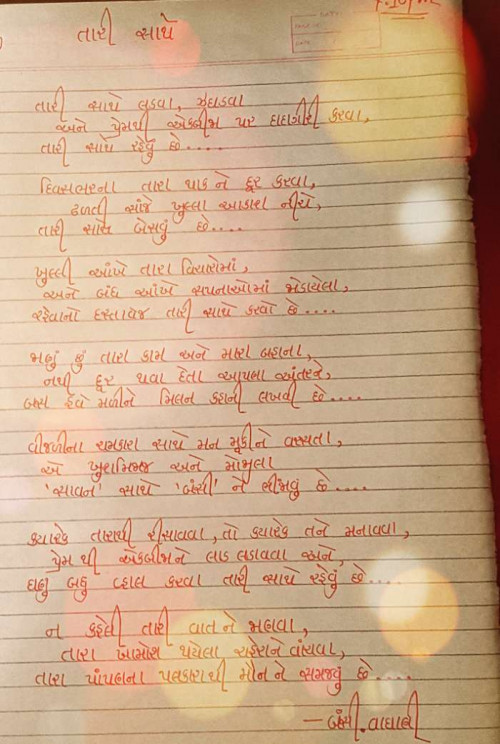 તારી સાથે
તારી સાથે લડવા, ઝઘડવા
અને પ્રેમથી એકબીજા પર દાદાગીરી કરવા,
તારી સાથે રહેવું છે....
દિવસભરના તારા થાક ને દૂર કરવા,
ઢળતી સાંજે ખુલ્લા આકાશ નીચે,
તારી સાથે બેસવું છે....
ખુલ્લી આંખે તારા વિચારોમાં,
અને બંધ આંખે સપનાઓમાં જોડાયેલા,
રહેવાનો દસ્તાવેજ તારી સાથે કરવો છે....
જાણું છું તારા કામ અને મારા બહાના,
નથી દૂર થવા દેતા આપણા અંતરને,
બસ હવે મળીને મિલન કહાની લખવી છે....
વીજળીના ચમકારા સાથે મન મૂકીને વરસતા,
એ ખુશમિજાજ અને મોભુલા
'સાવન' સાથે 'બંસી' ને ભીંજવું છે....
ક્યારેક તારાથી રીસાવવા, તો ક્યારેક તને મનાવવા,
પ્રેમ થી એકબીજાને લાડ લડાવવા અને,
ઘણું બધું વ્હાલ કરવા તારી સાથે રહેવું છે....
ન કહેલી તારી વાત ને જાણવા,
તારા ખામોશ થયેલા ચહેરાને વાંચવા,
તારા પાંપણના પલકારાથી મૌન ને સમજવું છે....
- બંસી. વાઘાણી